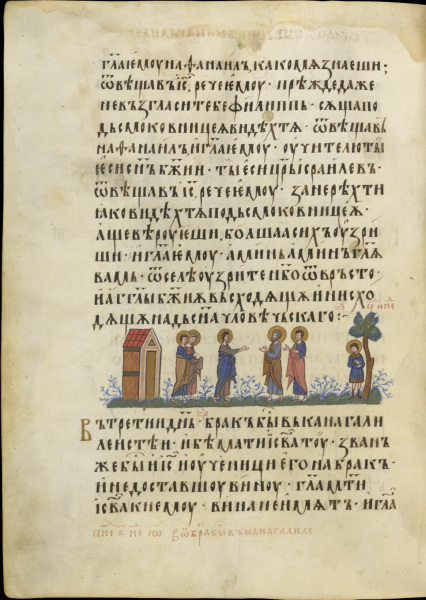 гл҃а емоу наѳанаилъ како мѧ знаеши;
ѿвѣщавъ і҃с, рече емоу · прѣжде даже
не възгласи тебе филиппъ · сѫща по
дъ смоковницеѧ видѣхъ тѧ · ѿвѣщавъ
наѳанаилъ и гл҃а емоу · оучителю ты
еси с҃нъ б҃жїи · ты еси ц҃рь їсраилевъ ·
ѿвѣщавъ і҃с, рече емоу · зане рѣхъ ти
ꙗко видѣхъ тѧ подъ смоковницеѫ ·
вѣроуеши, болша сихъ оузри
ши · и гл҃а емоу · аминь аминь гл҃ѧ
вамъ · ѿселѣ оузрите н҃бо ѿвръсто ·
и агг҃лы б҃жиѧ въсходѧщѧ и нисхо
дѧщѧ надъ с҃на чловѣчьскаго :~
Въ третїи д҃нь · бракъ бы въ кана гали
леистѣи · и бѣ м҃ати і҃сва тоу · зван
же бы и і҃с и оученици его на бракъ ·
и недоставшоу виноу · гл҃а м҃ти
і҃сва к немоу · вина не имѫтъ · и гл҃а